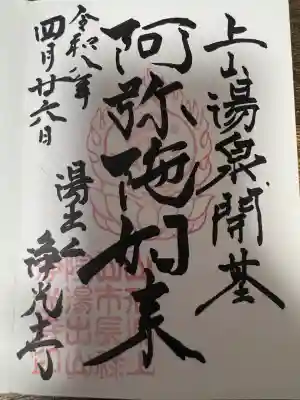 上山湯泉開基
阿弥陀如来
令和八年
四月廿六日
湯出山
浄光寺